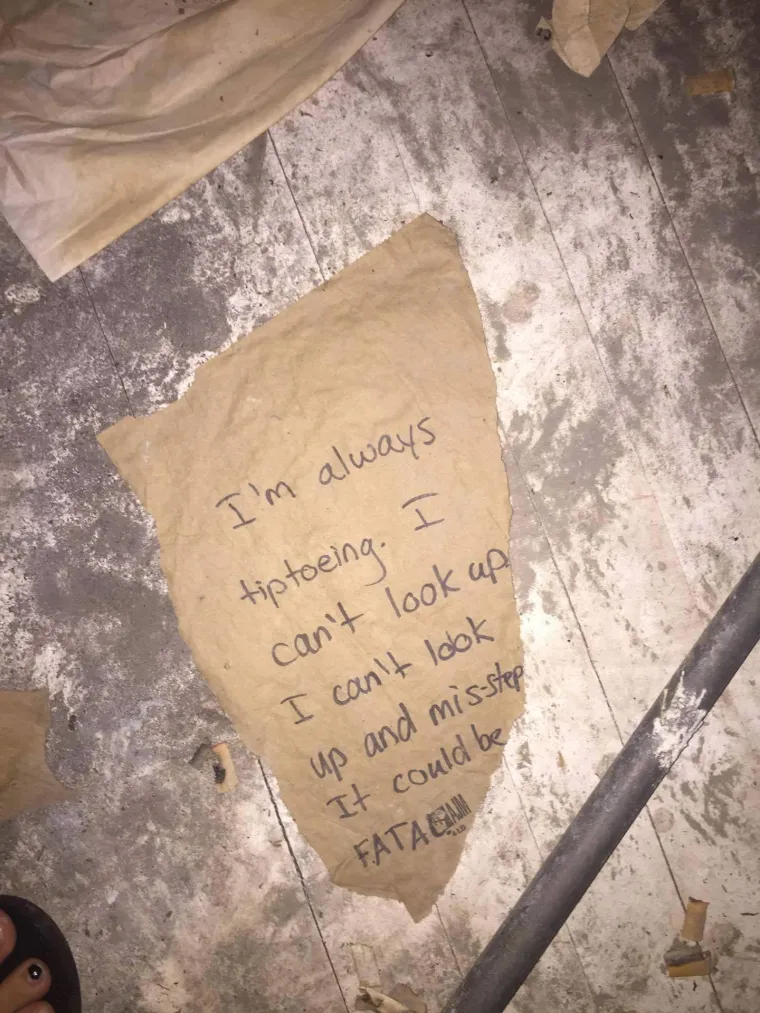 I'm always
tiptoeing. I
can't look up.
I can't look
up and mis-step
It could be
FATAL